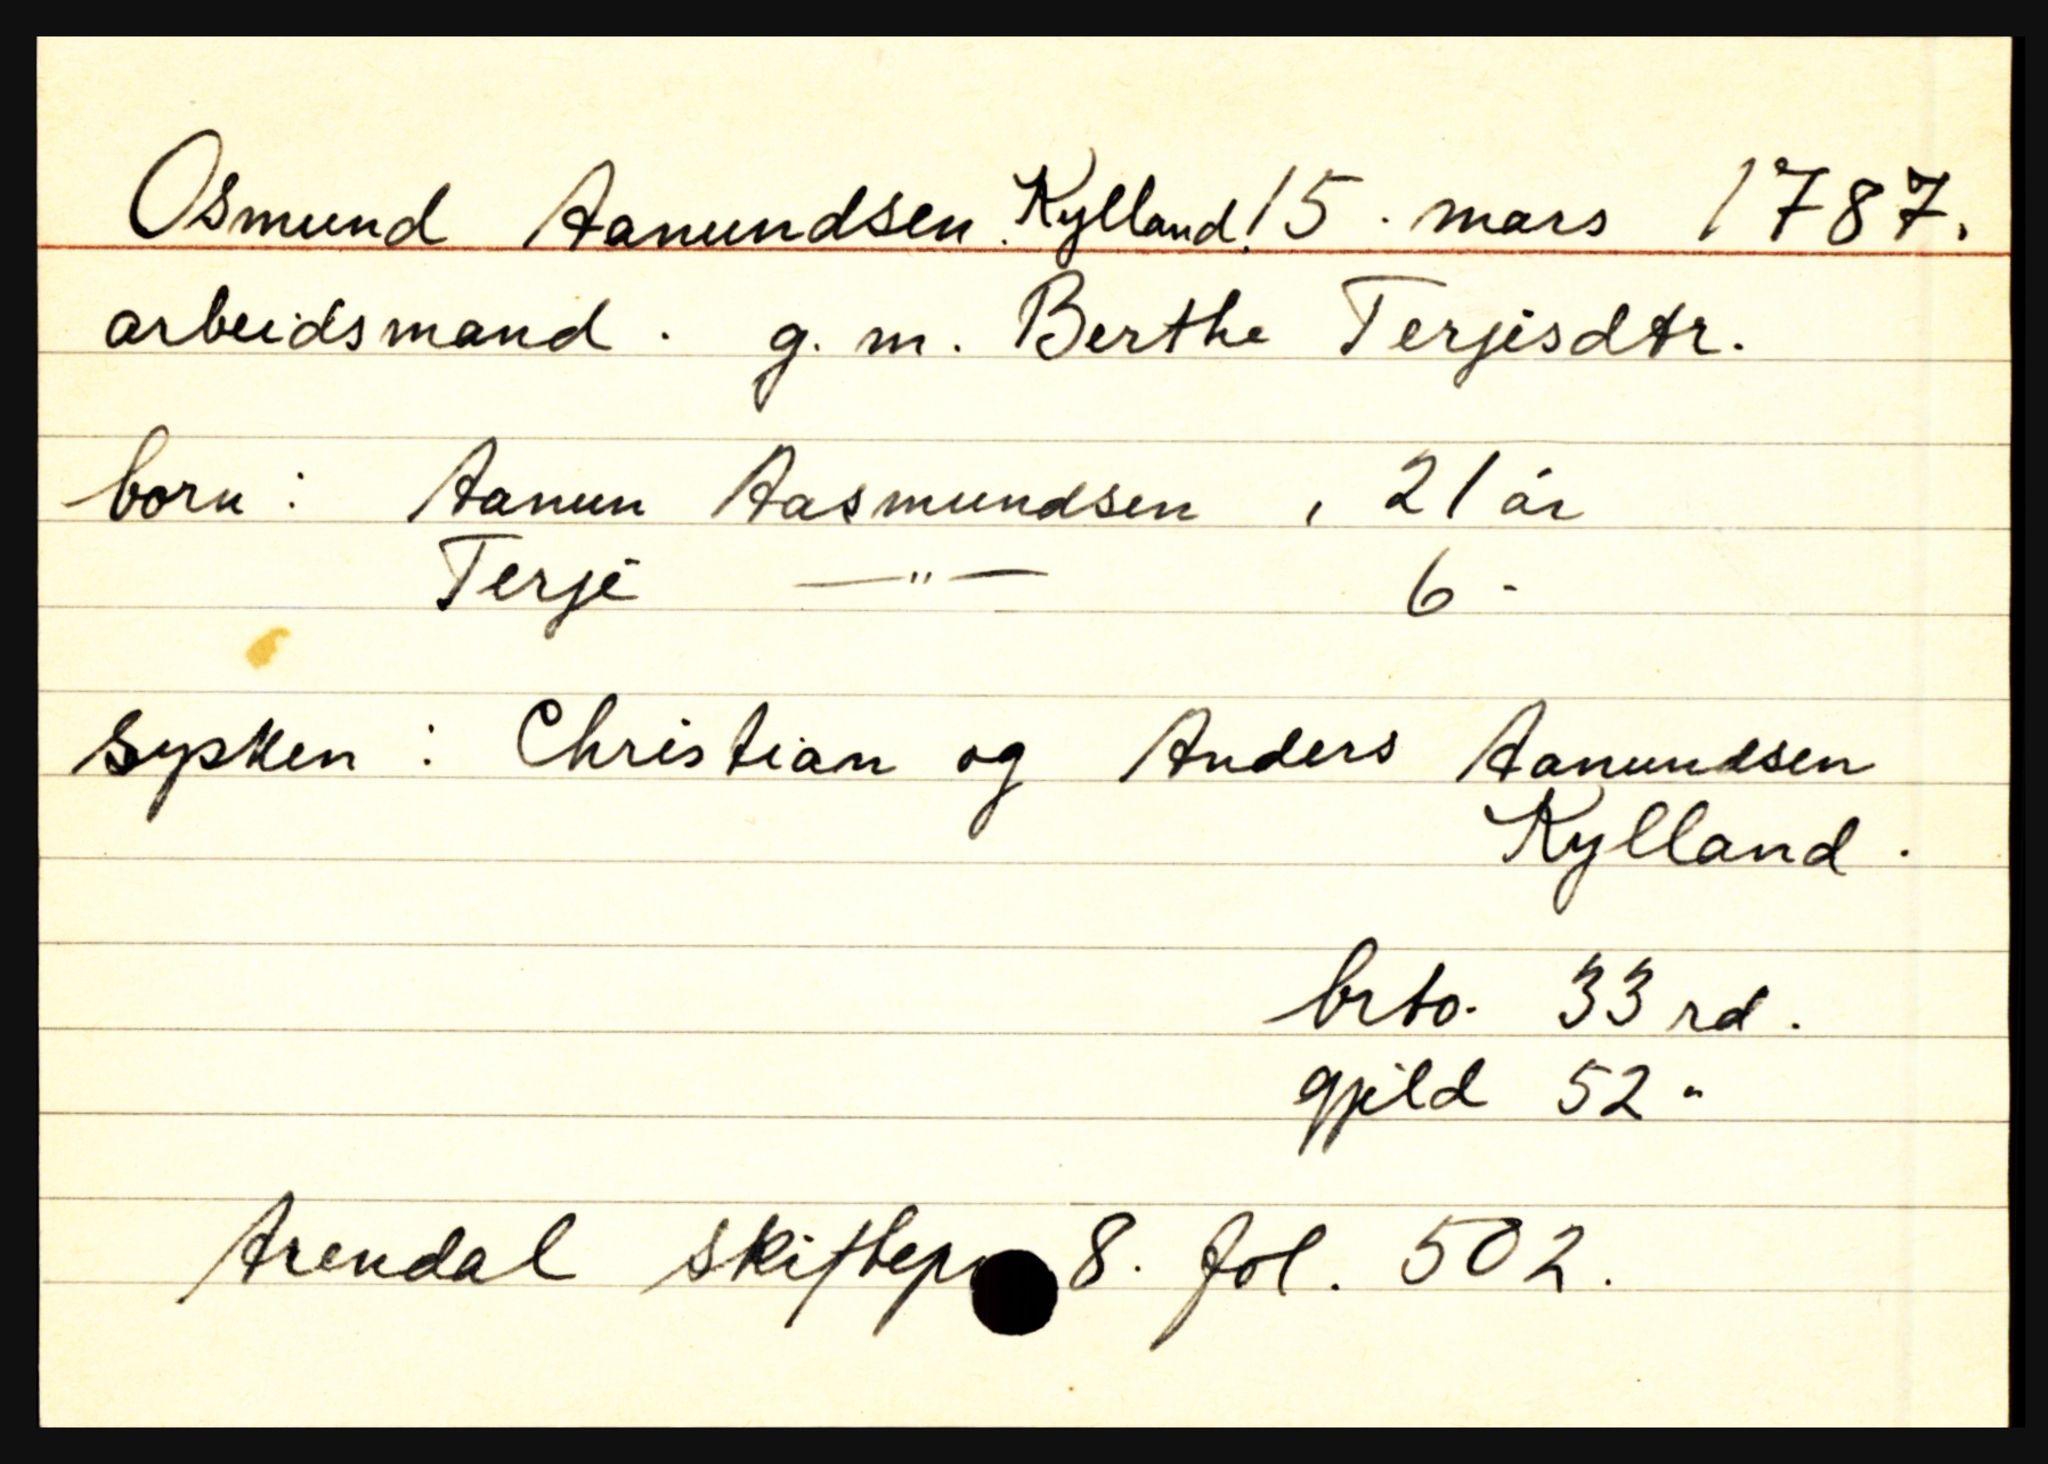 Osmund Aanundsen. Kylland. 15. mars 1787.
arbeidsmand. g. m. Berthe Terjesdtr.
born: Aanun Aasmundsen, 21 år
Terje —"— 6 -
sysken: Christian og Anders Aanundsen
Kylland.
brto. 33 rd.
gjeld 52 "
Arendal 8. fol. 502.